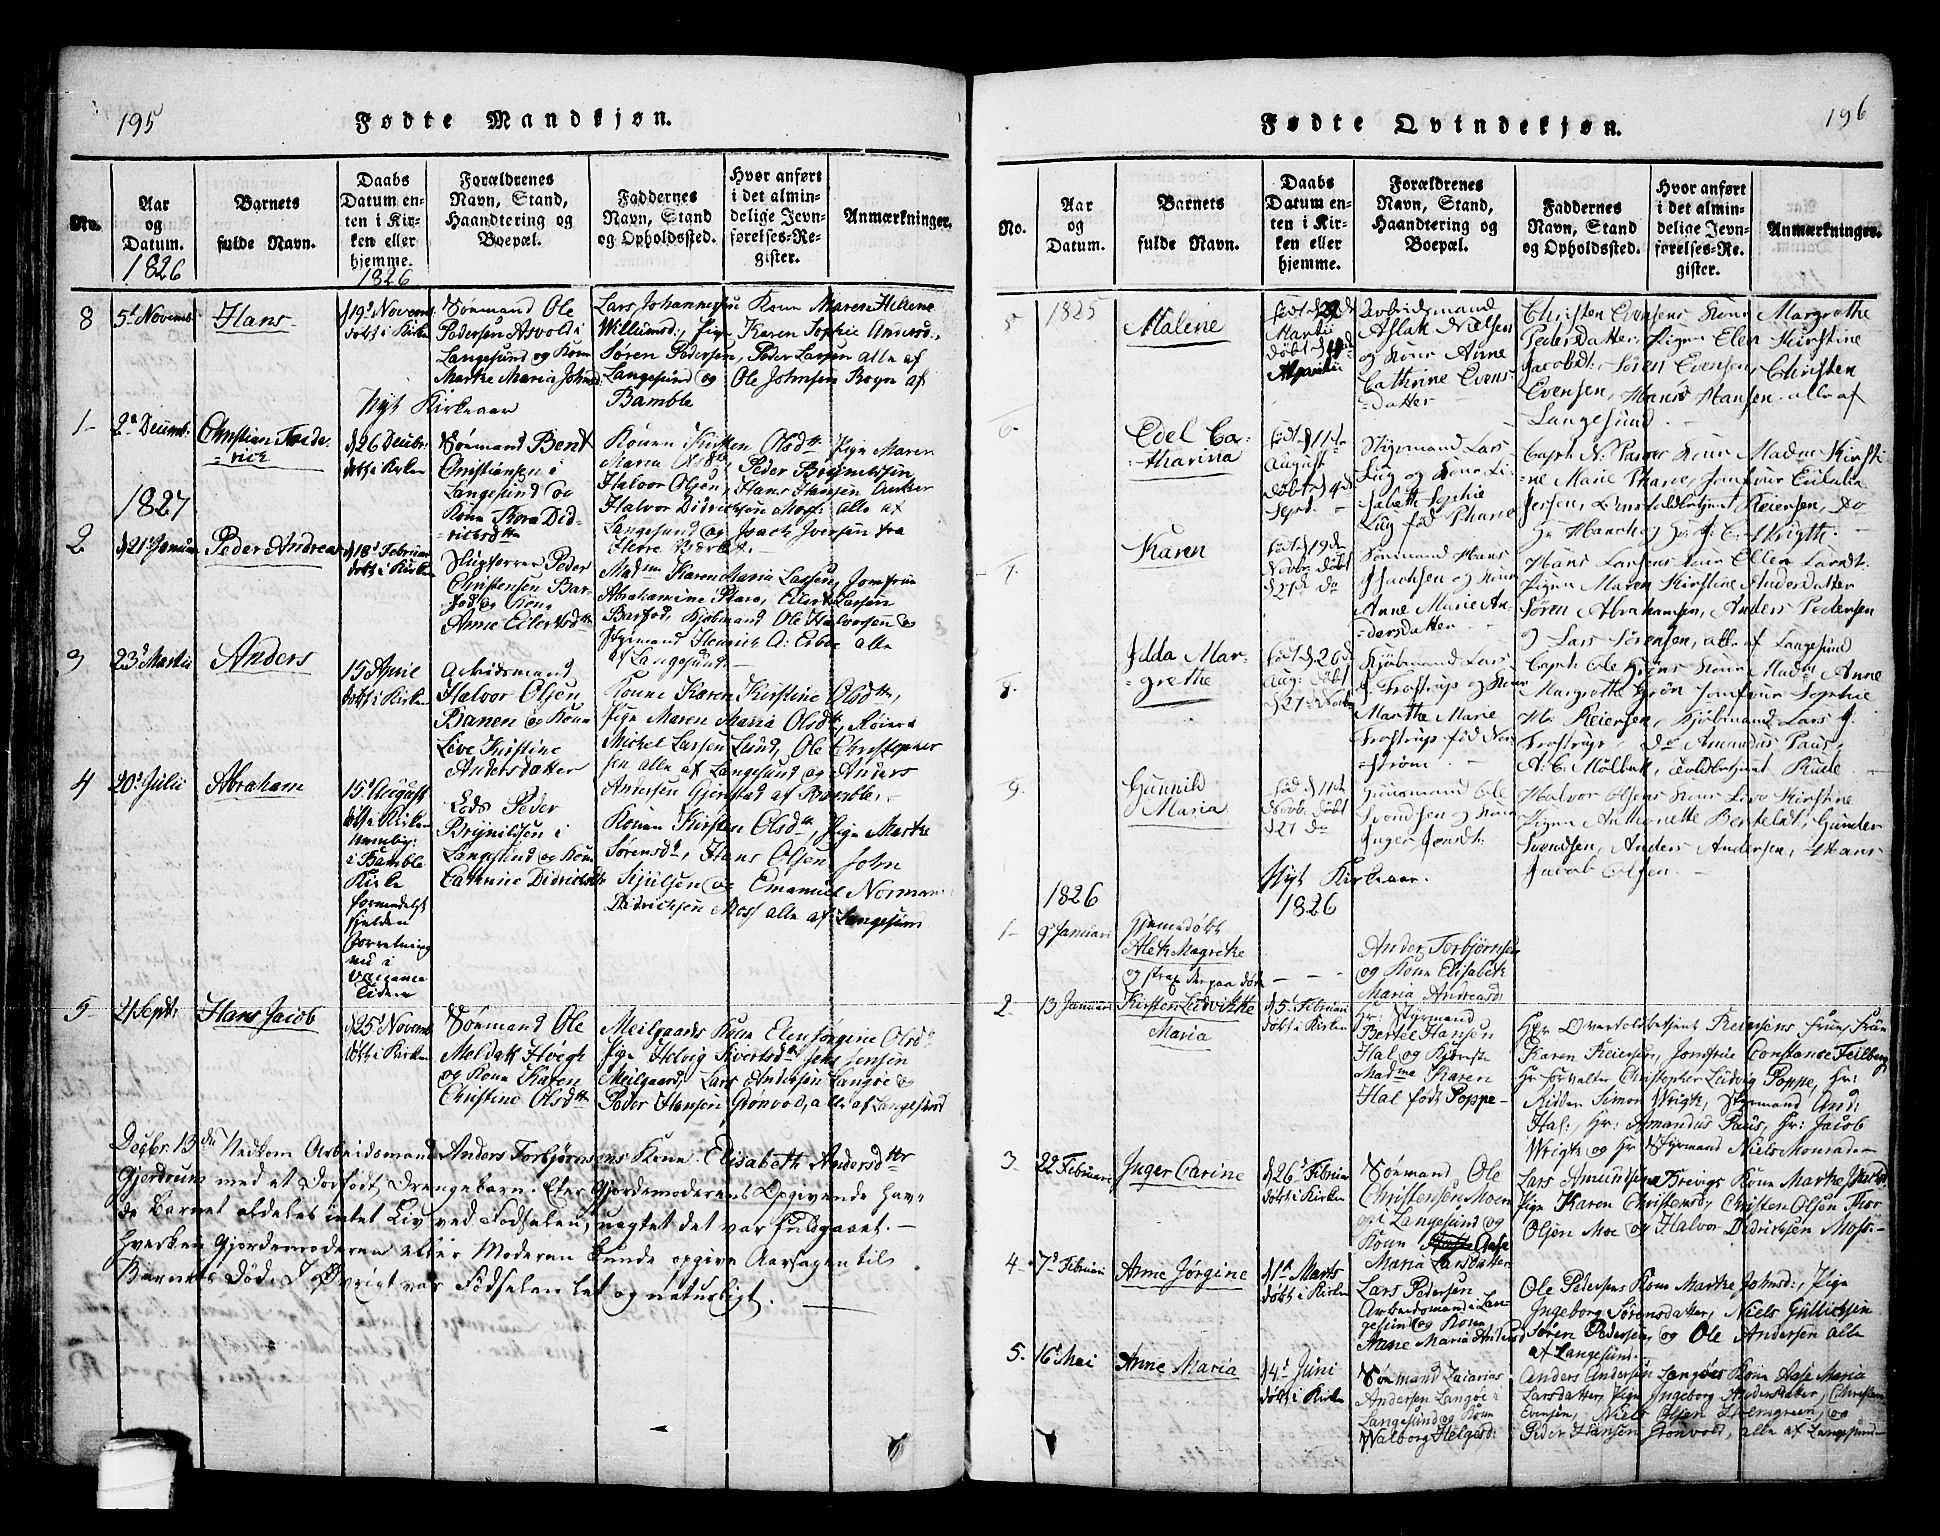 195
Fødte Mandkjøn.
No.
Aar og Datum.
Barnets fulde Navn.
Daabs Datum enten i Kirken eller hjemme.
Forældrenes Navn, Stand, Haandtering og Boepæl.
Faddernes Navn, Stand og Opholdssted.
Hvor anført i det almindelige Jevnførelses-Register.
Anmærkninger.
1826
1826
8
5t Novemb
Hans
19d Novemb
døbt i Kirken
Sømand Ole
Pedersen Asvold i
Langesund og Kone
Marthe Maria Johnsd:
Lars Johannesen Kone Maren Helene
Willumsd: Pige Karen Sophie Andersd.,
Søren Pedersen, Peder Larsen alle af
Langesund og Ole Johnsen Rogn af
Bamble
Nyt Kirkeaar
1
2d Decemb.
Christian Frede-
rick
d 26 Decbr.
døbt i Kirken
Sømand Bent
Christiansen i
Langesund og
Kone Thora Did-
richsdtr
Konen Kirsten Olsdtr Pige Maren
Maria Olsdtr Peder Brynildsen
Halvor Olsen, Hans Hansen Anker
Halvor Didricksen Moss: alle af
Langesund og Isach Iversen fra
Herre
1827
2
d 21 Januar
Peder Andreas
d 18d Februar
døbt i Kirken
Peder
Christensen Bar-
fod og Kone
Anne Eilertsdtr
Madme Karen Maria Larsen, Jomfrue
Abrahamine Eilert Larsen
Barfod, Kjøbmand Ole Halvorsen og
Styrmand Henrich A: alle
af Langesund
3
23d Martii
Anders
15 April
døbt i Kirken
Arbeidsmand
Halvor Olsen
Banen og Kone
Live Kirstine
Andersdatter
Konne Karen Kirstine Olsdtr,
Pige Maren Maria Olsdtr,
Michel Larsen Lund, Ole Christopher
sen alle af Langesund og Anders
Andersen Gjerstad af Bamble.
4
20d Julii
Abraham
15d August
døbt i Kirken
i Bamble
Kirke
formedelst
Forretning
nu i
Vacance
Tiden
Lods Peder
Brynildsen i
Langesund og Kone
Cathrine Didrichsdtr
Konen Kirsten Olsdtr, Pige Marthe
Sørensd:, Hans Olsen John
Kjeilsen og Emanuel Norman
Didricksen Moss alle af Langesund
5
21 Septr
Hans Jacob
d 25d Novemb
døbt i Kirken
Sømand Ole
Moldatt Høegh
og Kone Karen
Christine Olsdtr
Meilgaards Kone Elen Jørgine Olsdtr
Pige Helvig Sivertsdtr Jens Jensen
Meilgaard, Lars Andersen Langøe og
Peder Hansen Grønvold, alle af Langesund
Decbr. 13de Nedkom Arbeidsmand Anders Torbjørnsens Kone Elisabeth Andersdtr
Gjerdrum med et Dødfødt Drengebarn. Efter Gjordemoderens Opgivende hav-
de Barnet aldeles intet Liv ved Fødselen, uagtet det var fuldgaaet.
Hverken Gjordemoderen eller Moderen kunde opgive Aarsagen til
Barnets Død. I Øvrigt var Fødselen let og naturligt.
196
Fødte Qvindekjøn.
No.
Aar og Datum.
Barnets fulde Navn.
Daabs Datum enten i Kirken eller hjemme.
Forældrenes Navn, Stand, Haandtering og Boepæl.
Faddernes Navn, Stand og Opholdssted.
Hvor anført i det almindelige Jevnførelses-Register.
Anmærkninger.
5
1825
Malene
født d
Martii
døbt d
Arbeidsmand
Aslak Nielsen
og Kone Anne
Cathrine Evens-
datter
Christen Evensens Kone Margrethe
Pedersdatter, Pigen Elen Kirstine
Jacobdt:, Søren Evensen, Christen
Evensen, Hans Hansen, alle af
Langesund.
6.
Edel Ca-
tharina
født d 11te
August
døbt d 4de
Septb.
Styrmand Lars
Lug og Kone Li-
sabeth Sophie
Lug fød Pharo
Capt. N. Paus's Kone Madm Kirsti
ne Marie Pharo, Jomfrue Eulalia
Jersen, Reiersen, Do
Hr Hauch og Hr A. C. Wrigth.
7.
Karen
født d 19de
Novbr. døbt
d 27de Do
Sømand Hans
Isachsen og Kone
Anne Marie An-
dersdatter
Hans Larsens Kone Ellen Larsdt.
Pigen Maren Kirstine Andersdatter
Søren Abrahamsen, Anders Pedersen
og Lars Sørensen, alle af Langesund
8.
Idda Mar-
grethe
født d 26de
Aug: døbt
d 27 Novbr
Kjøbmand Lars
J. Trostrup og Kone
Marthe Marie
Trostrup fød Nor
strøm
Capt. Ole Grøns Kone Madm Anne
Margrethe Grøn Jomfrue Sophie
M: Reiersen, Kjøbmand Lars J.
Trostrup, Do Amandus Paus,
A. C. Mølbak, Toldbetjent Rude.
9.
Gunnild
Maria
fød d 11te
Novbr. døbt
d 27 Do
Huusmand Ole
Svendsen og Kone
Inger Jensdt:
Halvor Olsens Kone Live Kirstine
Pigen Anthonette Berteldt, Gunder
Svendsen, Anders Andersen, Hans
Jacob Olsen.
Nyt Kirkeaar.
1826
1826
1
9d Januari
Hjemmedøbt
Aleth Magrethe
og strax derpaa døde
Ander Torbjørnsen
og Kone Elisabeth
Maria Andreasd:
2
13 Januari
Kirsten Ludvikke
Maria
d 5d Februari
døbt i Kirken
Hr: Styrmand
Bertel Hansen
Hal og Kjereste
Madme Karen
Hal født Poppe
Hr Overtoldbetjent Reiersens Frue, Frue
Karen Reiersen, Jomfrue Constance Feilberg
Hr Forvalter Christopher Ludvig Poppe, Hr:
Ridder Simon Wrigth, Styrmand And:
Hal: Hr: Amandus Paus, Hr: Jacob
Wrigth og Hr Styrmand Niels Monrad.
3
22 Februari
Inger Carine
d 26d Februar
døbt i Kirken
Sømand Ole
Christensen Moen
i Langesund og
Kone Aase
Maria Larsdatter
Lars Amundsen Brevigs Kone Marthe Jacobd
Pige Karen Christensd, Christen Olsøn Thor
Olsen Moe og Halvor Didrichsen Moss
4
7d Februari
Anne Jørgine
d 1ste Marts
døbt i Kirken
Lars Pedersen
Arbeidsmand i Lan-
gesund og Kone
Anne Maria Andersd
Ole Pedersens Kone Marthe Johnsd:, Pige
Ingeborg Sørensdatter, Niels Gullichsen
Søren Pedersen og Ole Andersen alle
af Langesund.
5.
16d Mai
Anne Maria
d 4d Juni
døbt i Kirken
Sømand Zacarias
Andersen Langøe i
Langesund og Kone
Walborg Helgesd:
Anders Andersen Langøes Kone Aase Maria
Larsdatter, Pige Ingeborg Andersdatter, Christen
Evensen, Niels Olsen Holmgreen, og
Peder Hansen Grønvold, alle af Langesund